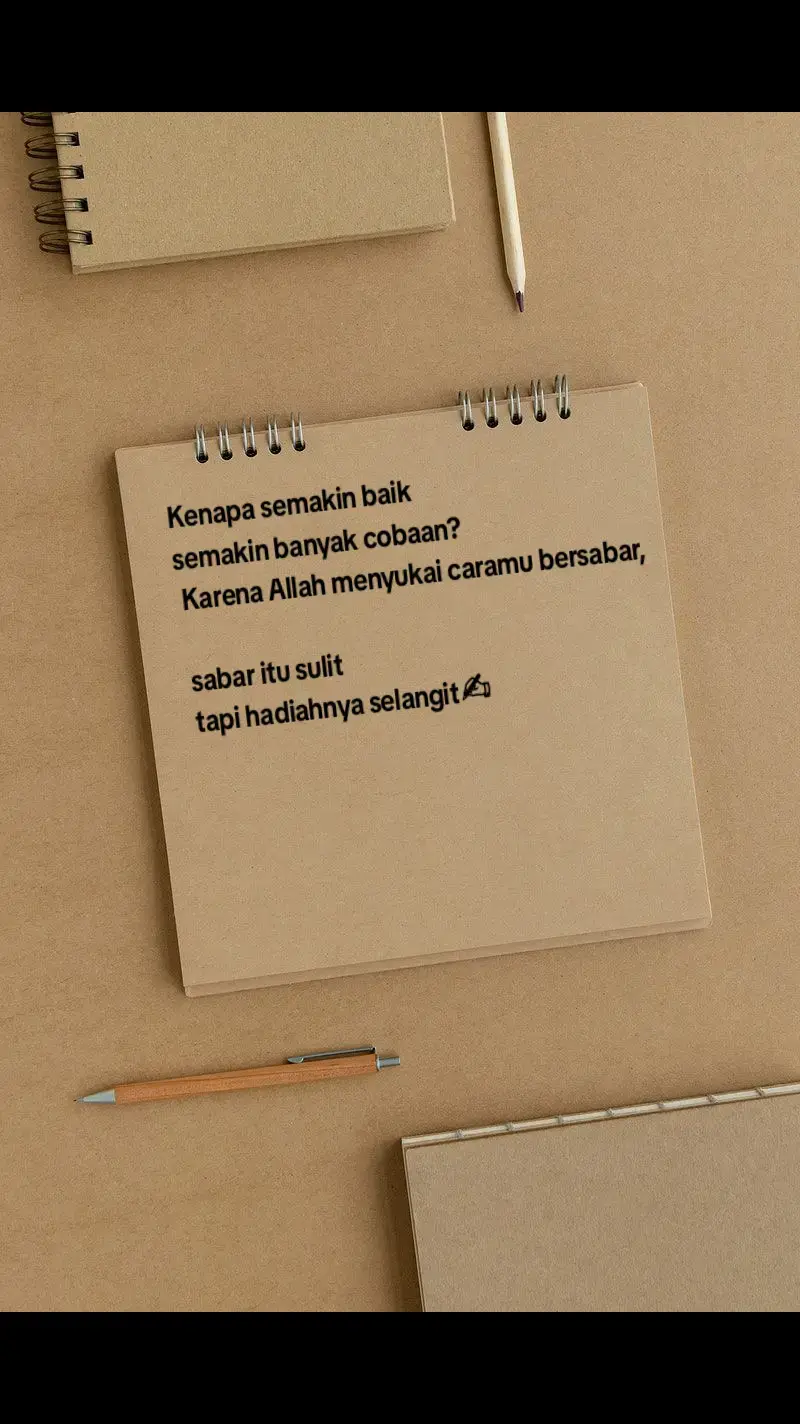 Kenapa semakin baik
semakin banyak cobaan?
Karena Allah menyukai caramu bersabar,
sabar itu sulit
tapi hadiahnya selangit✍